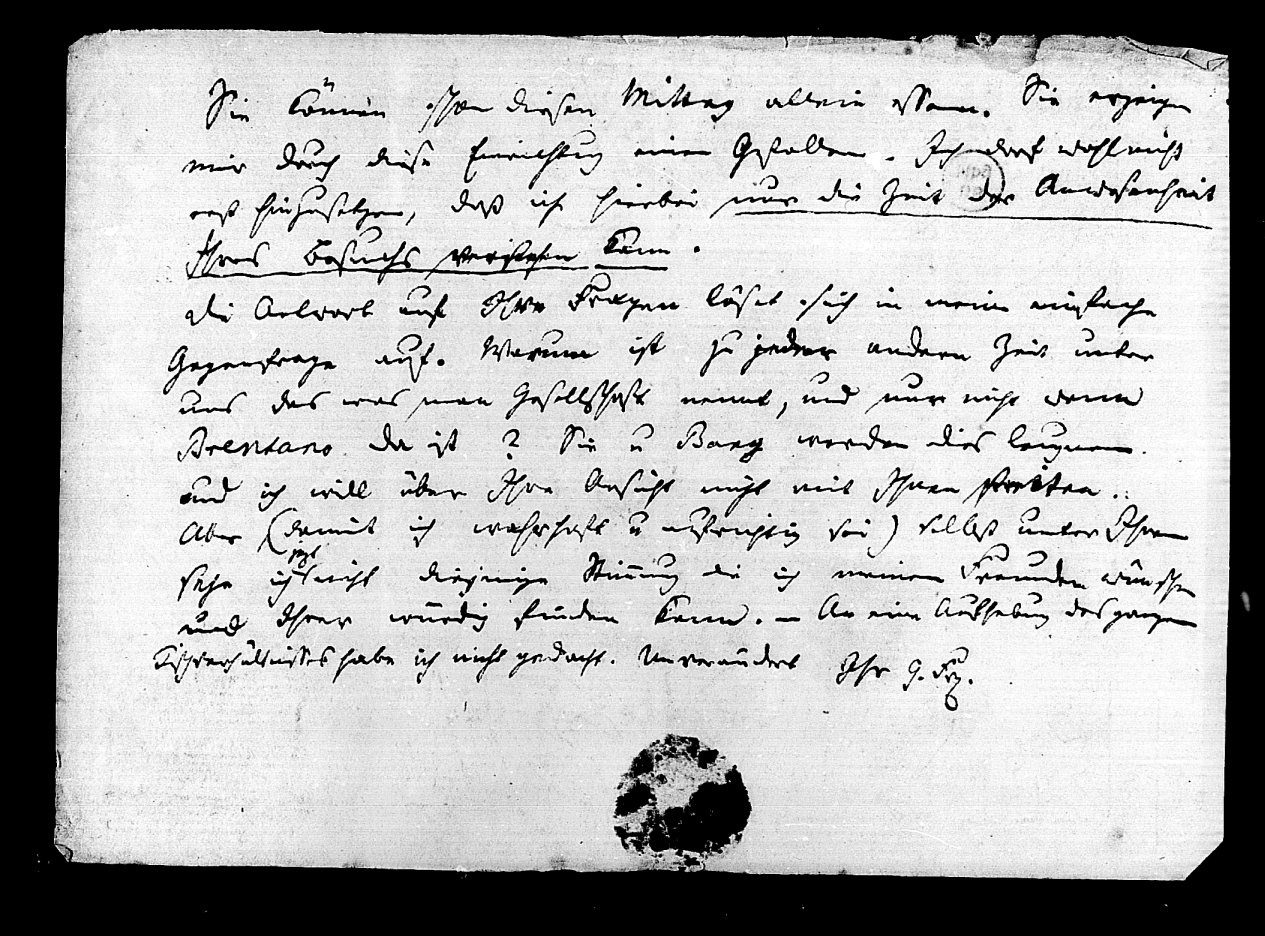 Sie können schon diesen Mittag allein essen. Sie erzeigen
mir durch diese Einrichtung einen Gefallen. Ich darf wohl nicht
erst hinzusetzen, daß ich hierbei nur die Zeit der Anwesenheit
Ihres Besuchs verstehen kann.
Die Antwort auf Ihre Fragen löset sich in meine einfache
Gegenfrage auf. Warum ist zu jeder andern Zeit unter
uns das was man Gesellschaft nennt, und nur nicht wenn
Brentano da ist? Sie u werden dies leugnen.
und ich will über Ihre Ansicht nicht mit Ihnen streiten.
Aber (damit ich wahrhaft u aufrichtig sei) selbst unter Ihnen
sehe ich jezt nicht diejenige Stimmung die ich meinen Freunden wünschen
und Ihrer würdig finden kann. – An eine Aufhebung des ganzen
Tischverhältnisses habe ich nicht gedacht. Unverändert Ihr G.